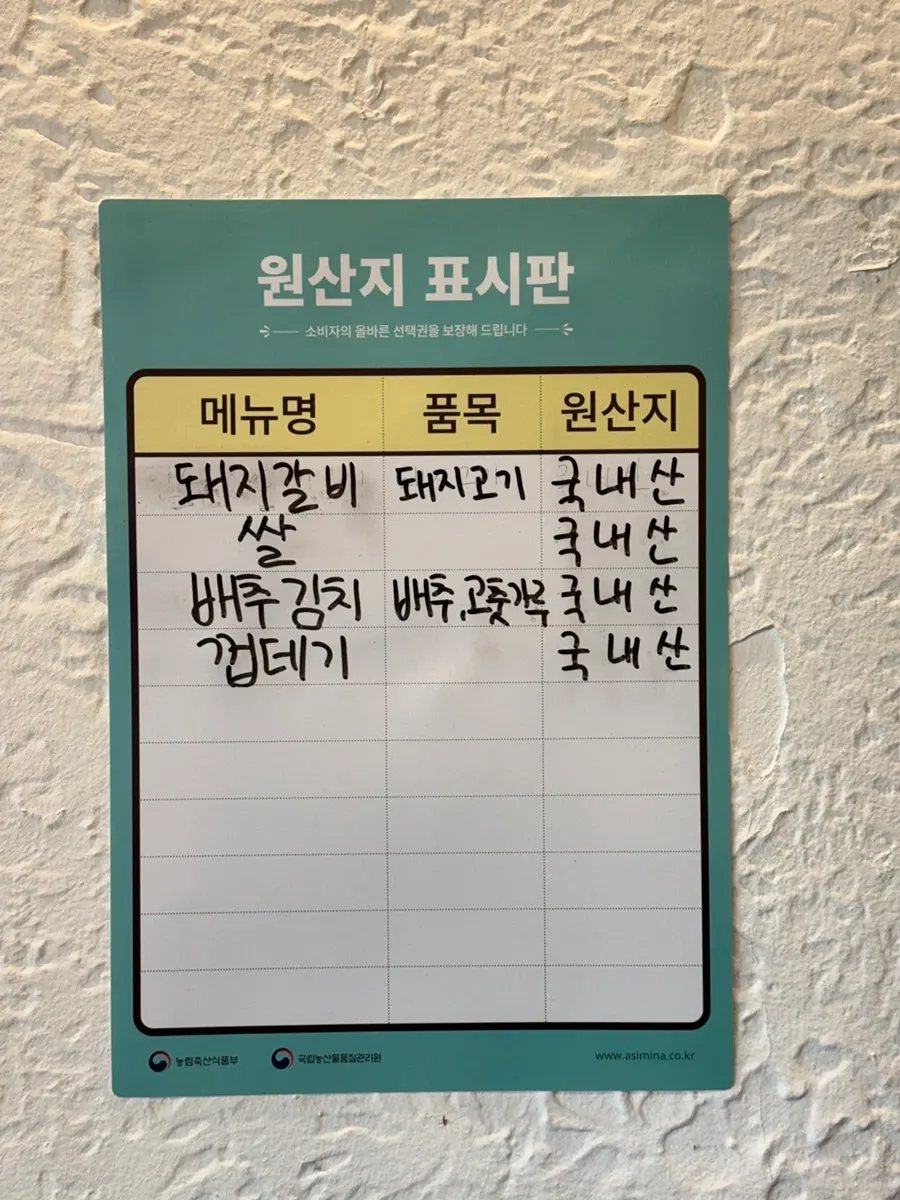 원산지 표시판
소비자의 올바른 선택권을 보장해 드립니다
메뉴명 품목 원산지
돼지갈비 돼지고기 국내산
쌀 국내산
배추김치 배추,고춧가루 국내산
껍데기 국내산
농림축산식품부 국립농산물품질관리원 www.asimina.co.kr